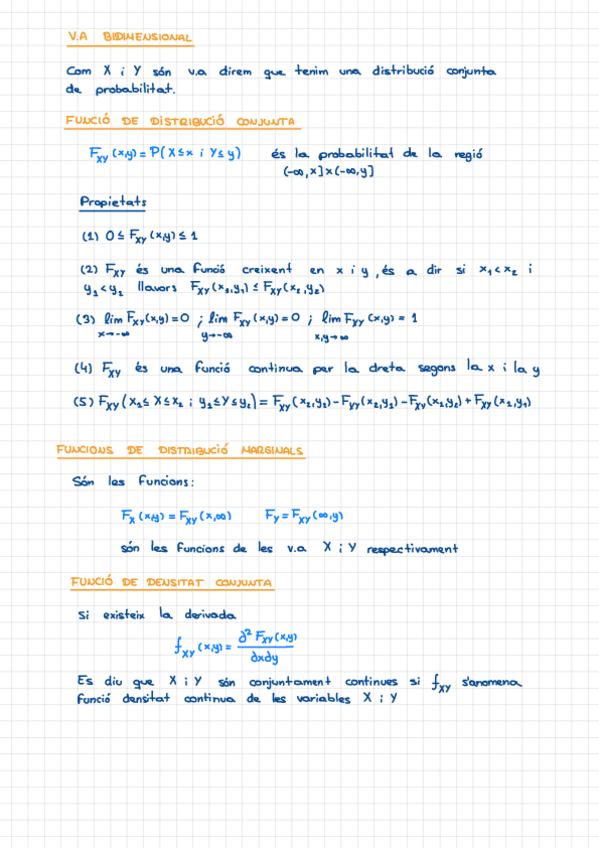 V.A BIDIMENSIONAL
Com X i Y són v.a direm que tenim una distribució conjunta
de probabilitat.
FUNCIÓ DE DISTRIBUCIÓ CONJUNTA
F_XY (x,y) = P( X ≤ x i Y ≤ y) és la probabilitat de la regió
(-∞, x] x (-∞, y]
Propietats
(1) 0 ≤ F_XY (x,y) ≤ 1
(2) F_XY és una funció creixent en x i y, és a dir si x₁ < x₂ i
y₁ < y₂ llavors F_XY(x₁,y₁) ≤ F_XY(x₂,y₂)
(3) lim F_XY(x,y) = 0 ; lim F_XY (x,y) = 0 ; lim F_XY (x,y) = 1
x→-∞ y→-∞ x,y→∞
(4) F_XY és una funció continua per la dreta segons la x i la y
(5) F_XY (x₁ ≤ X ≤ x₂ ; y₁ ≤ Y ≤ y₂) = F_XY (x₂,y₂) - F_XY (x₂,y₁) - F_XY (x₁,y₂) + F_XY (x₁,y₁)
FUNCIONS DE DISTRIBUCIÓ MARGINALS
Són les funcions:
F_X (x,y) = F_XY (x,∞) F_Y = F_XY (∞,y)
són les funcions de les v.a X i Y respectivament
FUNCIÓ DE DENSITAT CONJUNTA
Si existeix la derivada
f_XY (x,y) = ∂² F_XY (x,y) / ∂x∂y
Es diu que X i Y són conjuntament continues si f_XY s'anomena
funció densitat continua de les variables X i Y